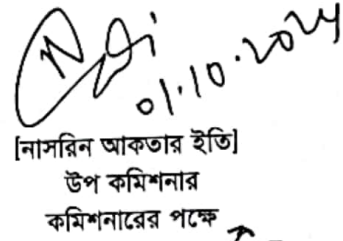 01.10.2024
[নাসরিন আকতার ইতি]
উপ কমিশনার
কমিশনারের পক্ষে